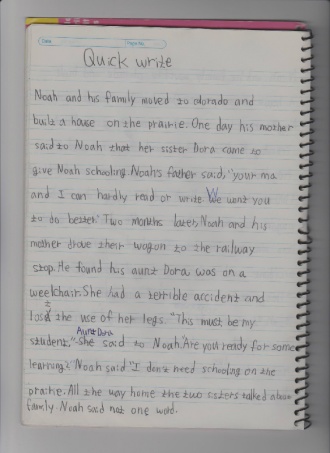 Date
Quick write
Noah and his family moved to olorado and
built a house on the prairie. One day his mother
said to Noah that her sister Dora came to
give Noah schooling. Noah's father said, "your ma
and I can hardly read or write. We want you
to do better." Two months later, Noah and his
mother drove their wagon to the railway
stop. He found his aunt Dora was on a
weelchair. She had a terrible accident and
lost the use of her legs. "This must be my
Aunt Dora
student." She said to Noah. "Are you ready for some
learning?" Noah said "I don't need schooling on the
prairie. All the way home the two sisters talked about
family. Noah said not one word.